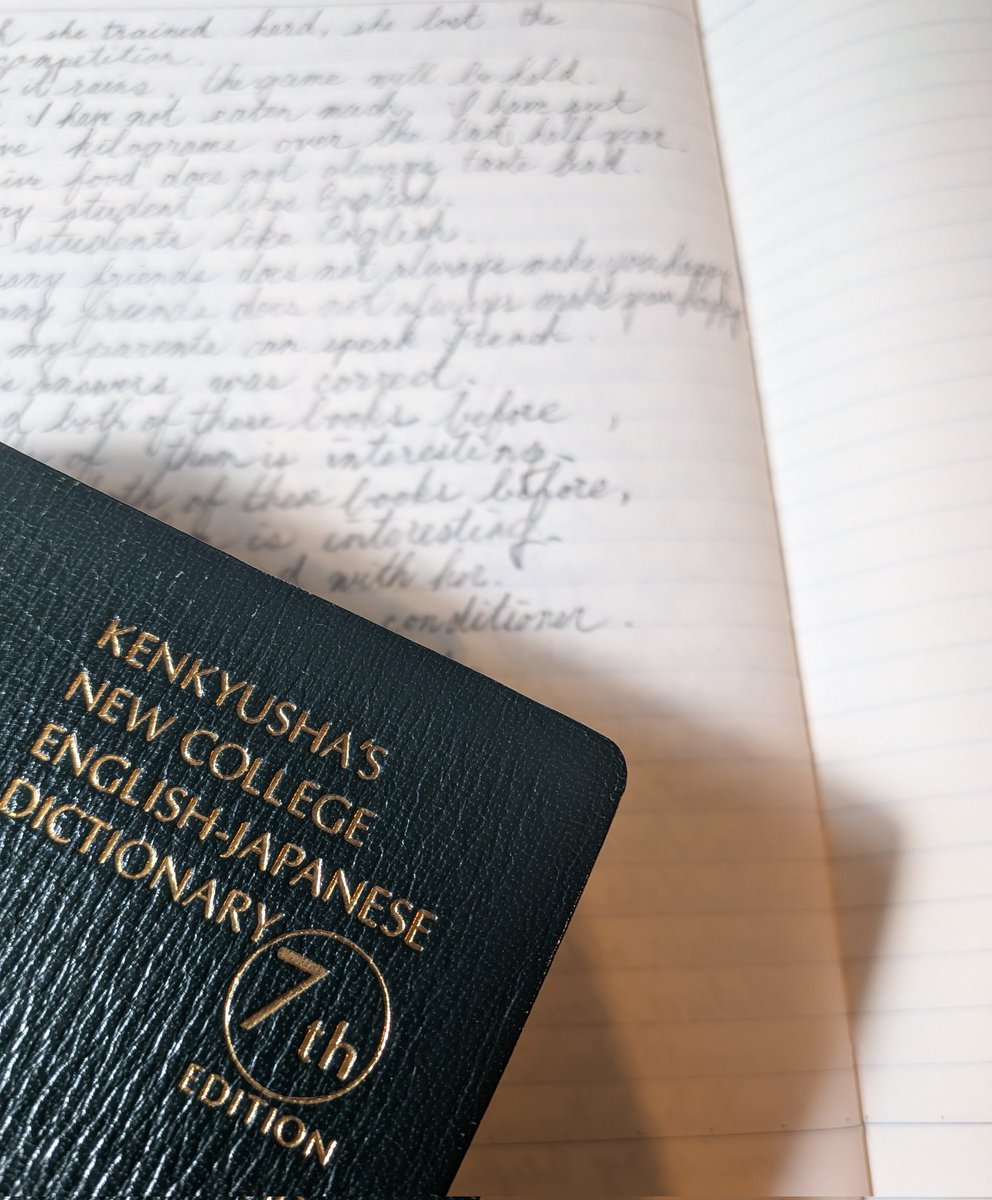 she trained hard, she lost the
competition.
it rains, the game will be held.
I have not eaten much, I have put
kilograms over the last half year
food does not always taste bad.
student likes English.
students like English.
many friends does not always make you happy
many friends does not always make you happy
my parents can speak French.
answers was correct.
both of these books before,
of them is interesting.
of these books before,
is interesting.
with her.
conditioner.
KENKYUSHA'S
NEW COLLEGE
ENGLISH-JAPANESE
DICTIONARY
7th
EDITION